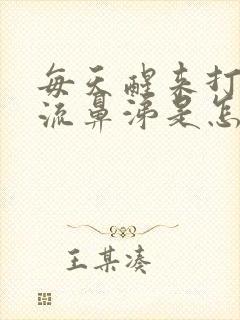 每天醒来打
流鼻涕是怎
王某凑